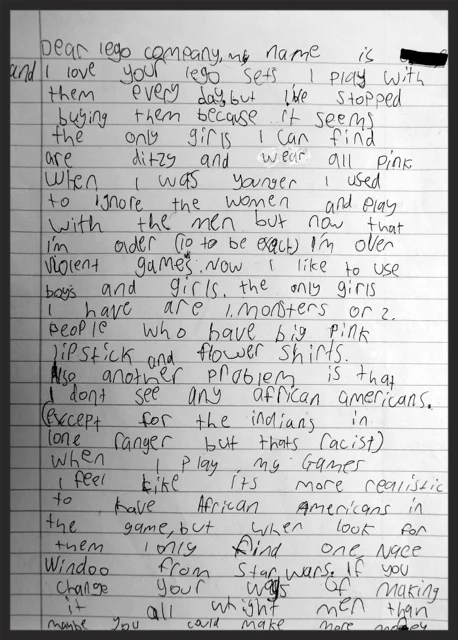 Dear lego company, my name is
and I love your lego sets, I play with
them every day, but Ive stopped
buying them because it seems
the only girls I can find
are ditzy and wear all pink
When I was younger I used
to ignore the women and play
with the men but now that
I'm older (10 to be exact) I'm over
violent games. Now I like to use
boys and girls. the only girls
I have are 1. monsters or 2.
people who have big pink
lipstick and flower shirts.
Also another problem is that
I dont see any african americans.
(except for the indians in
lone ranger but thats racist)
when I play my Games
I feel like its more realistic
to have African Americans in
the game, but when look for
them I only find one, Nace
Windoo from Star wars. If you
change your ways of making
it all whight men than
maybe you could make more money